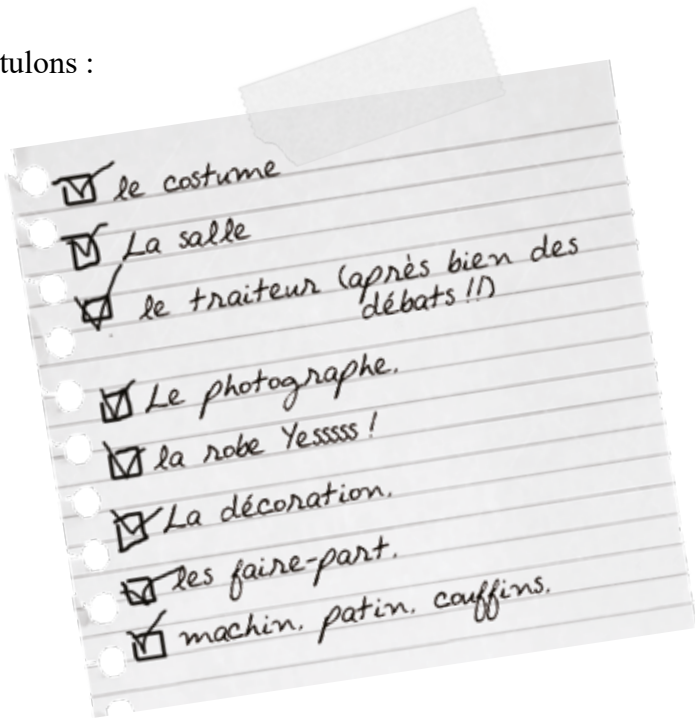 tulons :
le costume
La salle
le traiteur (après bien des
débats !!)
Le photographe.
la robe Yesssss !
La décoration.
les faire-part.
machin. patin. couffins.